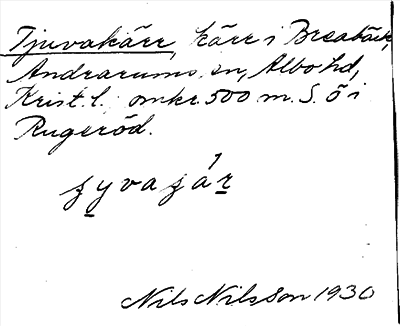 Tjuvakärr, kärr i Breabäck,
Andrarums sn, Albo hd,
Krist. l. omkr. 500 m. S. ö i
Rugeröd.
Nils Nilsson 1930